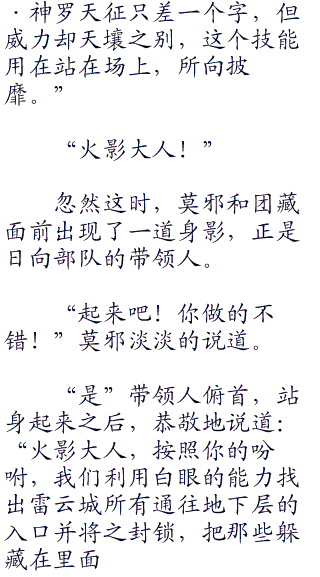 ·神罗天征只差一个字，但
威力却天壤之别，这个技能
用在站在场上，所向披
靡。”
“火影大人！”
忽然这时，莫邪和团藏
面前出现了一道身影，正是
日向部队的带领人。
“起来吧！你做的不
错！”莫邪淡淡的说道。
“是”带领人俯首，站
身起来之后，恭敬地说道：
“火影大人，按照你的吩
咐，我们利用白眼的能力找
出雷云城所有通往地下层的
入口并将之封锁，把那些躲
藏在里面